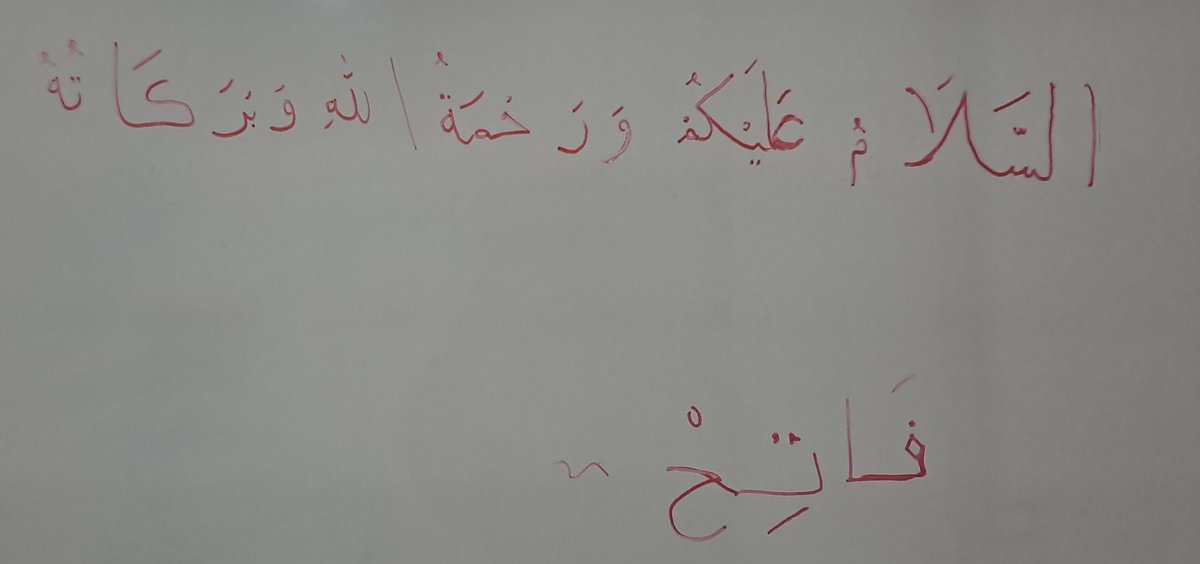 السَّلَامُ عَلَيْكُمْ وَرَحْمَةُ اللّٰهِ وَبَرَكَاتُهُ
فَاتِحْ ~